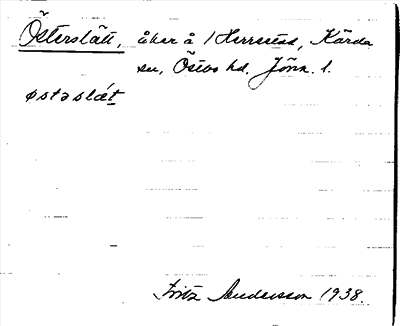 Österslätt, åker å /Herrestad, Kärda
sn, Östbo hd, Jönk. l.
østəslæt
Fritz Andersson 1938.